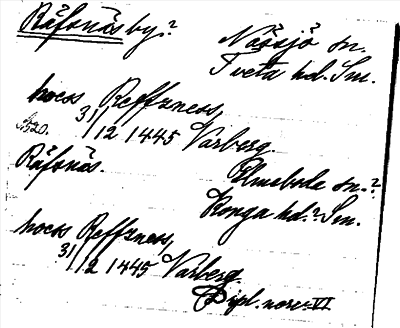 Räfsnäs by?
Nässjö sn.
Tveta hd. Sm.
hoess Reffzness,
31/12 1445 Varberg.
Räfsnäs.
Elmeboda sn.?
Konga hd.? Sm.
hoess Reffzness,
31/12 1445 Varberg
Dipl. norv. VI